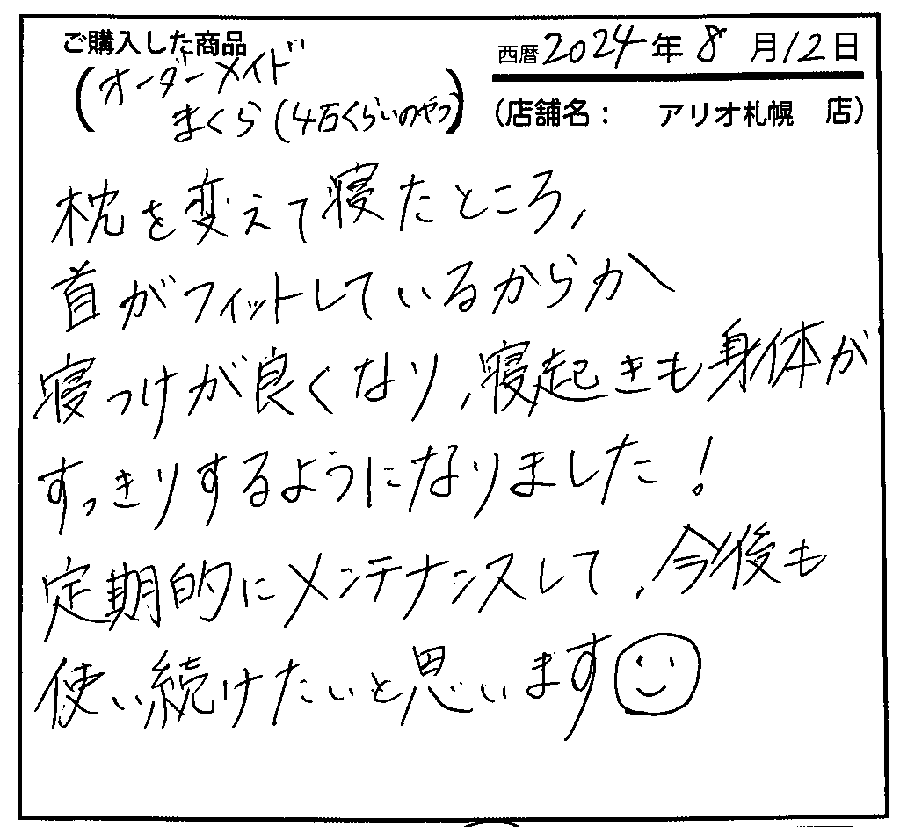 ご購入した商品
(オーダーメイド
まくら(4万くらいのやつ)
西暦2024年8月12日
(店舗名: アリオ札幌 店)
枕を変えて寝たところ,
首がフィットしているからか
寝つけが良くなり,寝起きも身体が
すっきりするようになりました!
定期的にメンテナンスして、今後も
使い続けたいと思います